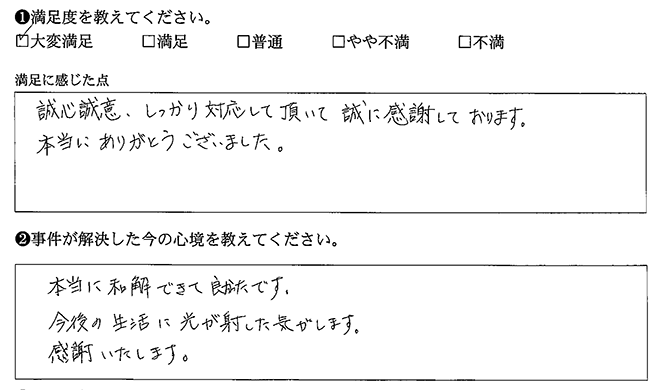 ❶満足度を教えてください。
☑大変満足 □満足 □普通 □やや不満 □不満
満足に感じた点
誠心誠意、しっかり対応して頂いて 誠に感謝しております。
本当に ありがとうございました。
❷事件が解決した今の心境を教えてください。
本当に和解できて良かたです。
今後の生活に光が射した気がします。
感謝いたします。